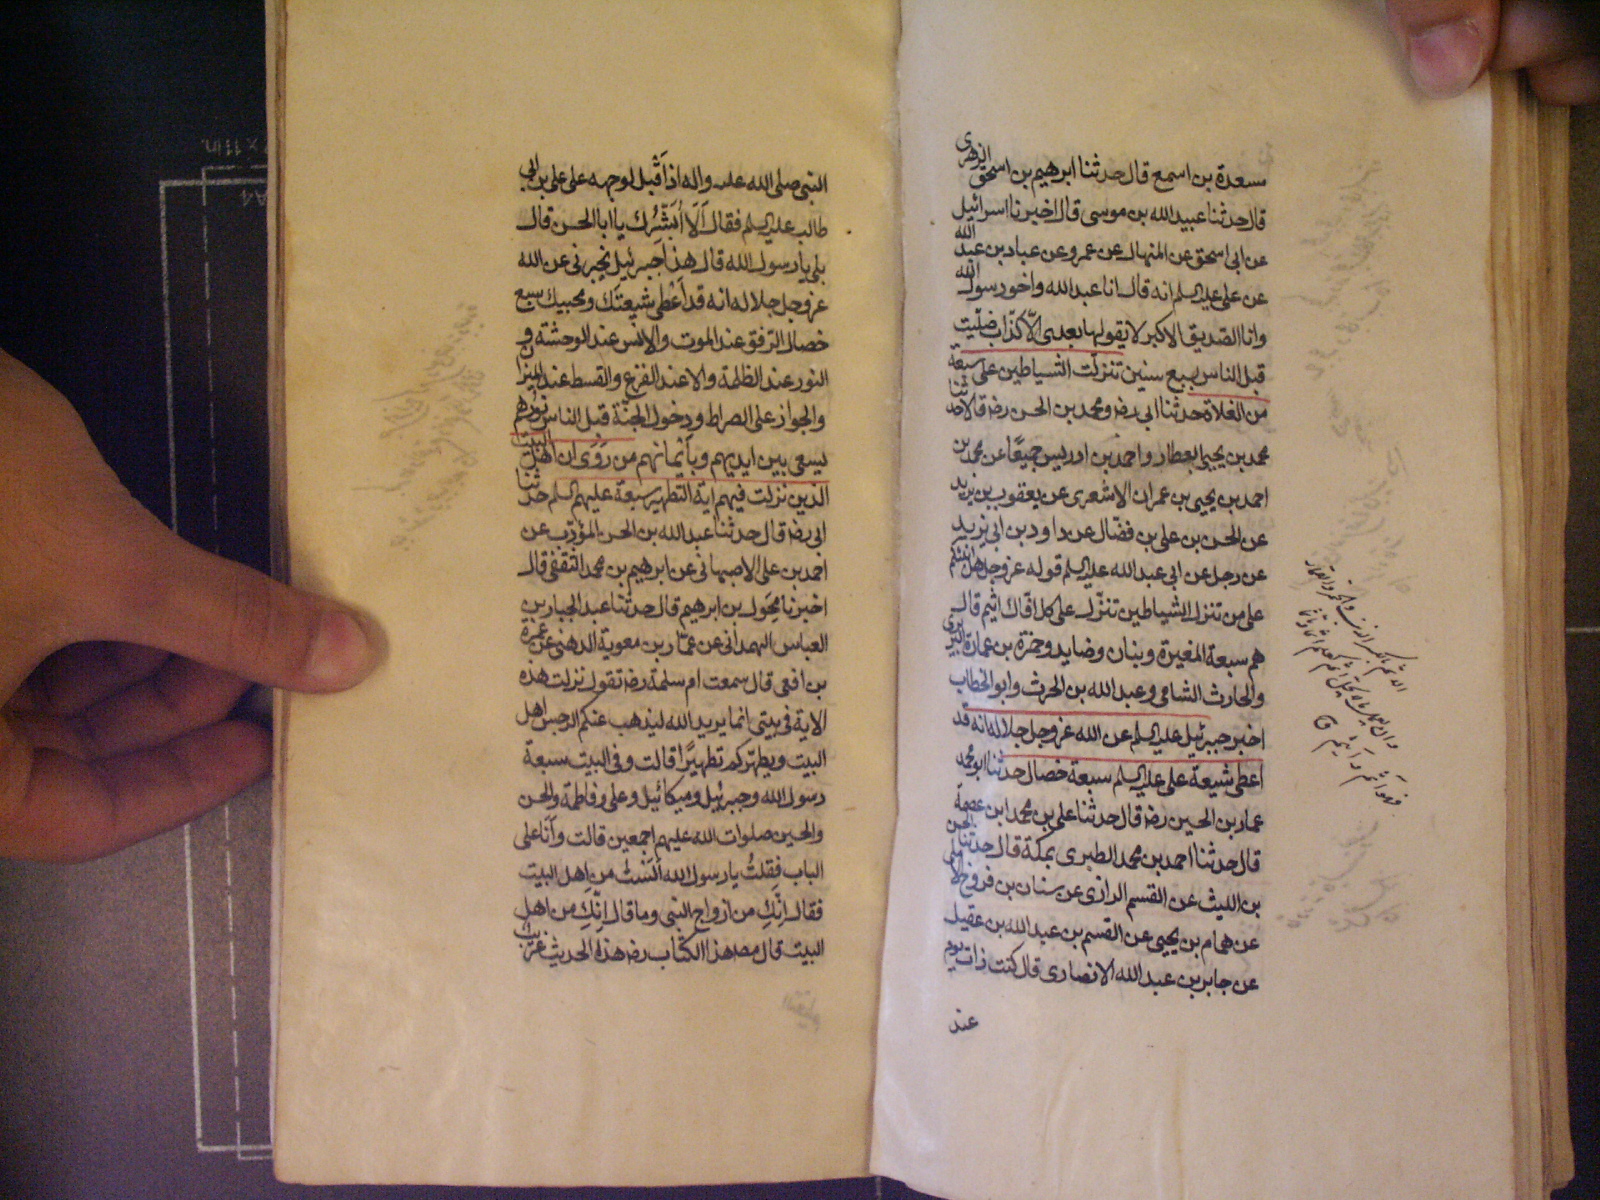 مسعدة بن اسمع قال حدثنا ابرهيم بن اسحق الزهرى
قال حدثنا عبيد الله بن موسى قال اخبرنا اسرائيل
عن ابى اسحق عن المنهال عن عمرو عن عباد بن عبد الله
عن على عليه السلم انه قال انا عبد الله واخو رسول الله
وانا الصديق الاكبر لا يقولها بعدى الا كذّاب صلّيت
قبل الناس بسبع سنين تنزلت الشياطين على سبعة
من الغلاة حدثنا ابى رضه ومحمد بن الحسن رضه قالا حدثنا
محمد بن يحيى العطار واحمد بن ادريس جميعًا عن محمد بن
احمد بن يحيى بن عمران الاشعرى عن يعقوب بن يزيد
عن الحسن بن على بن فضّال عن داود بن ابى يزيد
عن رجل عن ابى عبد الله عليه السلم قوله عز وجل هل انبئكم
على من تنزل الشياطين تنزّل على كل افّاك اثيم قال
هم سبعة المغيرة وبنان وصايد وحمزة بن عمارة البربرى
والحارث الشامى وعبد الله بن الحرث وابو الخطاب
اخبر جبرئيل عليه السلم عن الله عز وجل جلاله انه قد
اعطى شيعة على عليه السلم سبعة خصال حدثنا ابو محمد
عمار بن الحسين رضه قال حدثنا على بن محمد ابن عصمة
قال حدثنا احمد بن محمد الطبرى بمكة قال حدثنا الحسن
بن الليث عن القسم الرازى عن سنان بن فروخ الاملى
عن همام بن يحيى عن القسم بن عبد الله بن عقيل
عن جابر بن عبد الله الانصارى قال كنت ذات يوم
عند
النبى صلى الله عليه واله اذ اَقْبل بوجهه على على بن ابى
طالب عليه السلم فقال اَلَا اُبَشّرُك يا ابا الحسن قال
بلى يا رسول الله قال هذا جبرئيل يخبرنى عن الله
عز وجل جلاله انه قد اَعْطى شيعتَك ومحبيك سبع
خصال الرّفق عند الموت والانس عند الوحشة و
النور عند الظلمة والامن عند الفزع والقسط عند الميزان
والجواز على الصراط ودخول الجنّة قبل الناس نورهم
يسعى بين ايديهم وبأيمانهم من روى ان اهل البيت
الذين نزلت فيهم اية التطهير سبعة عليهم السلم حدثنا
ابى رضه قال حدثنا عبد الله بن الحسن المؤدّب عن
احمد بن على الاصبهانى عن ابرهيم بن محمد الثقفى قال
اخبرنا مخول بن ابرهيم قال حدثنا عبد الجبار بن
العباس الهمدانى عن عمّار بن معوية الدهنى عن عمرة
بن افعى قال سمعت ام سلمة رضه تقول نزلت هذه
الاية فى بيتى انما يريد الله ليذهب عنكم الرجس اهل
البيت ويطهّركم تطهيرًا قالت وفى البيت سبعة
رسول الله وجبرئيل وميكائيل وعلى وفاطمة والحسن
والحسين صلوات الله عليهم اجمعين قالت وأنا على
الباب فقلتُ يا رسول الله أَلَسْتُ من اهل البيت
فقال انّكِ من ازواج النبى وما قال انّكِ من اهل
البيت قال مصه هذا الكتاب رضه هذا الحديث غريب